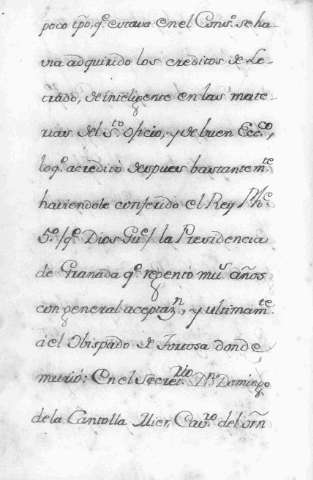 poco tpô, qᵉ estava en el Consº. se ha
via adquirido los creditos de Le-
trado, de inteligente en las mate-
rias del Sᵗᵒ Oficio, y de buen Eccᶜᵒ,
loqᵉ acreditó despues bastantemᵗᵉ
haviendole conferido el Rey Phᵉ
5º /qᵉ Dios Gᵘᵉ/ la Presidencia
de Granada qᵉ regento muˢ años
con general aceptazⁿ, y ultimamᵗᵉ
à el Obispado de Tortosa donde
murió; En el Secretʳⁱᵒ Dⁿ Domingo
de la Cantolla Mier, Cavʳᵒ del orñ